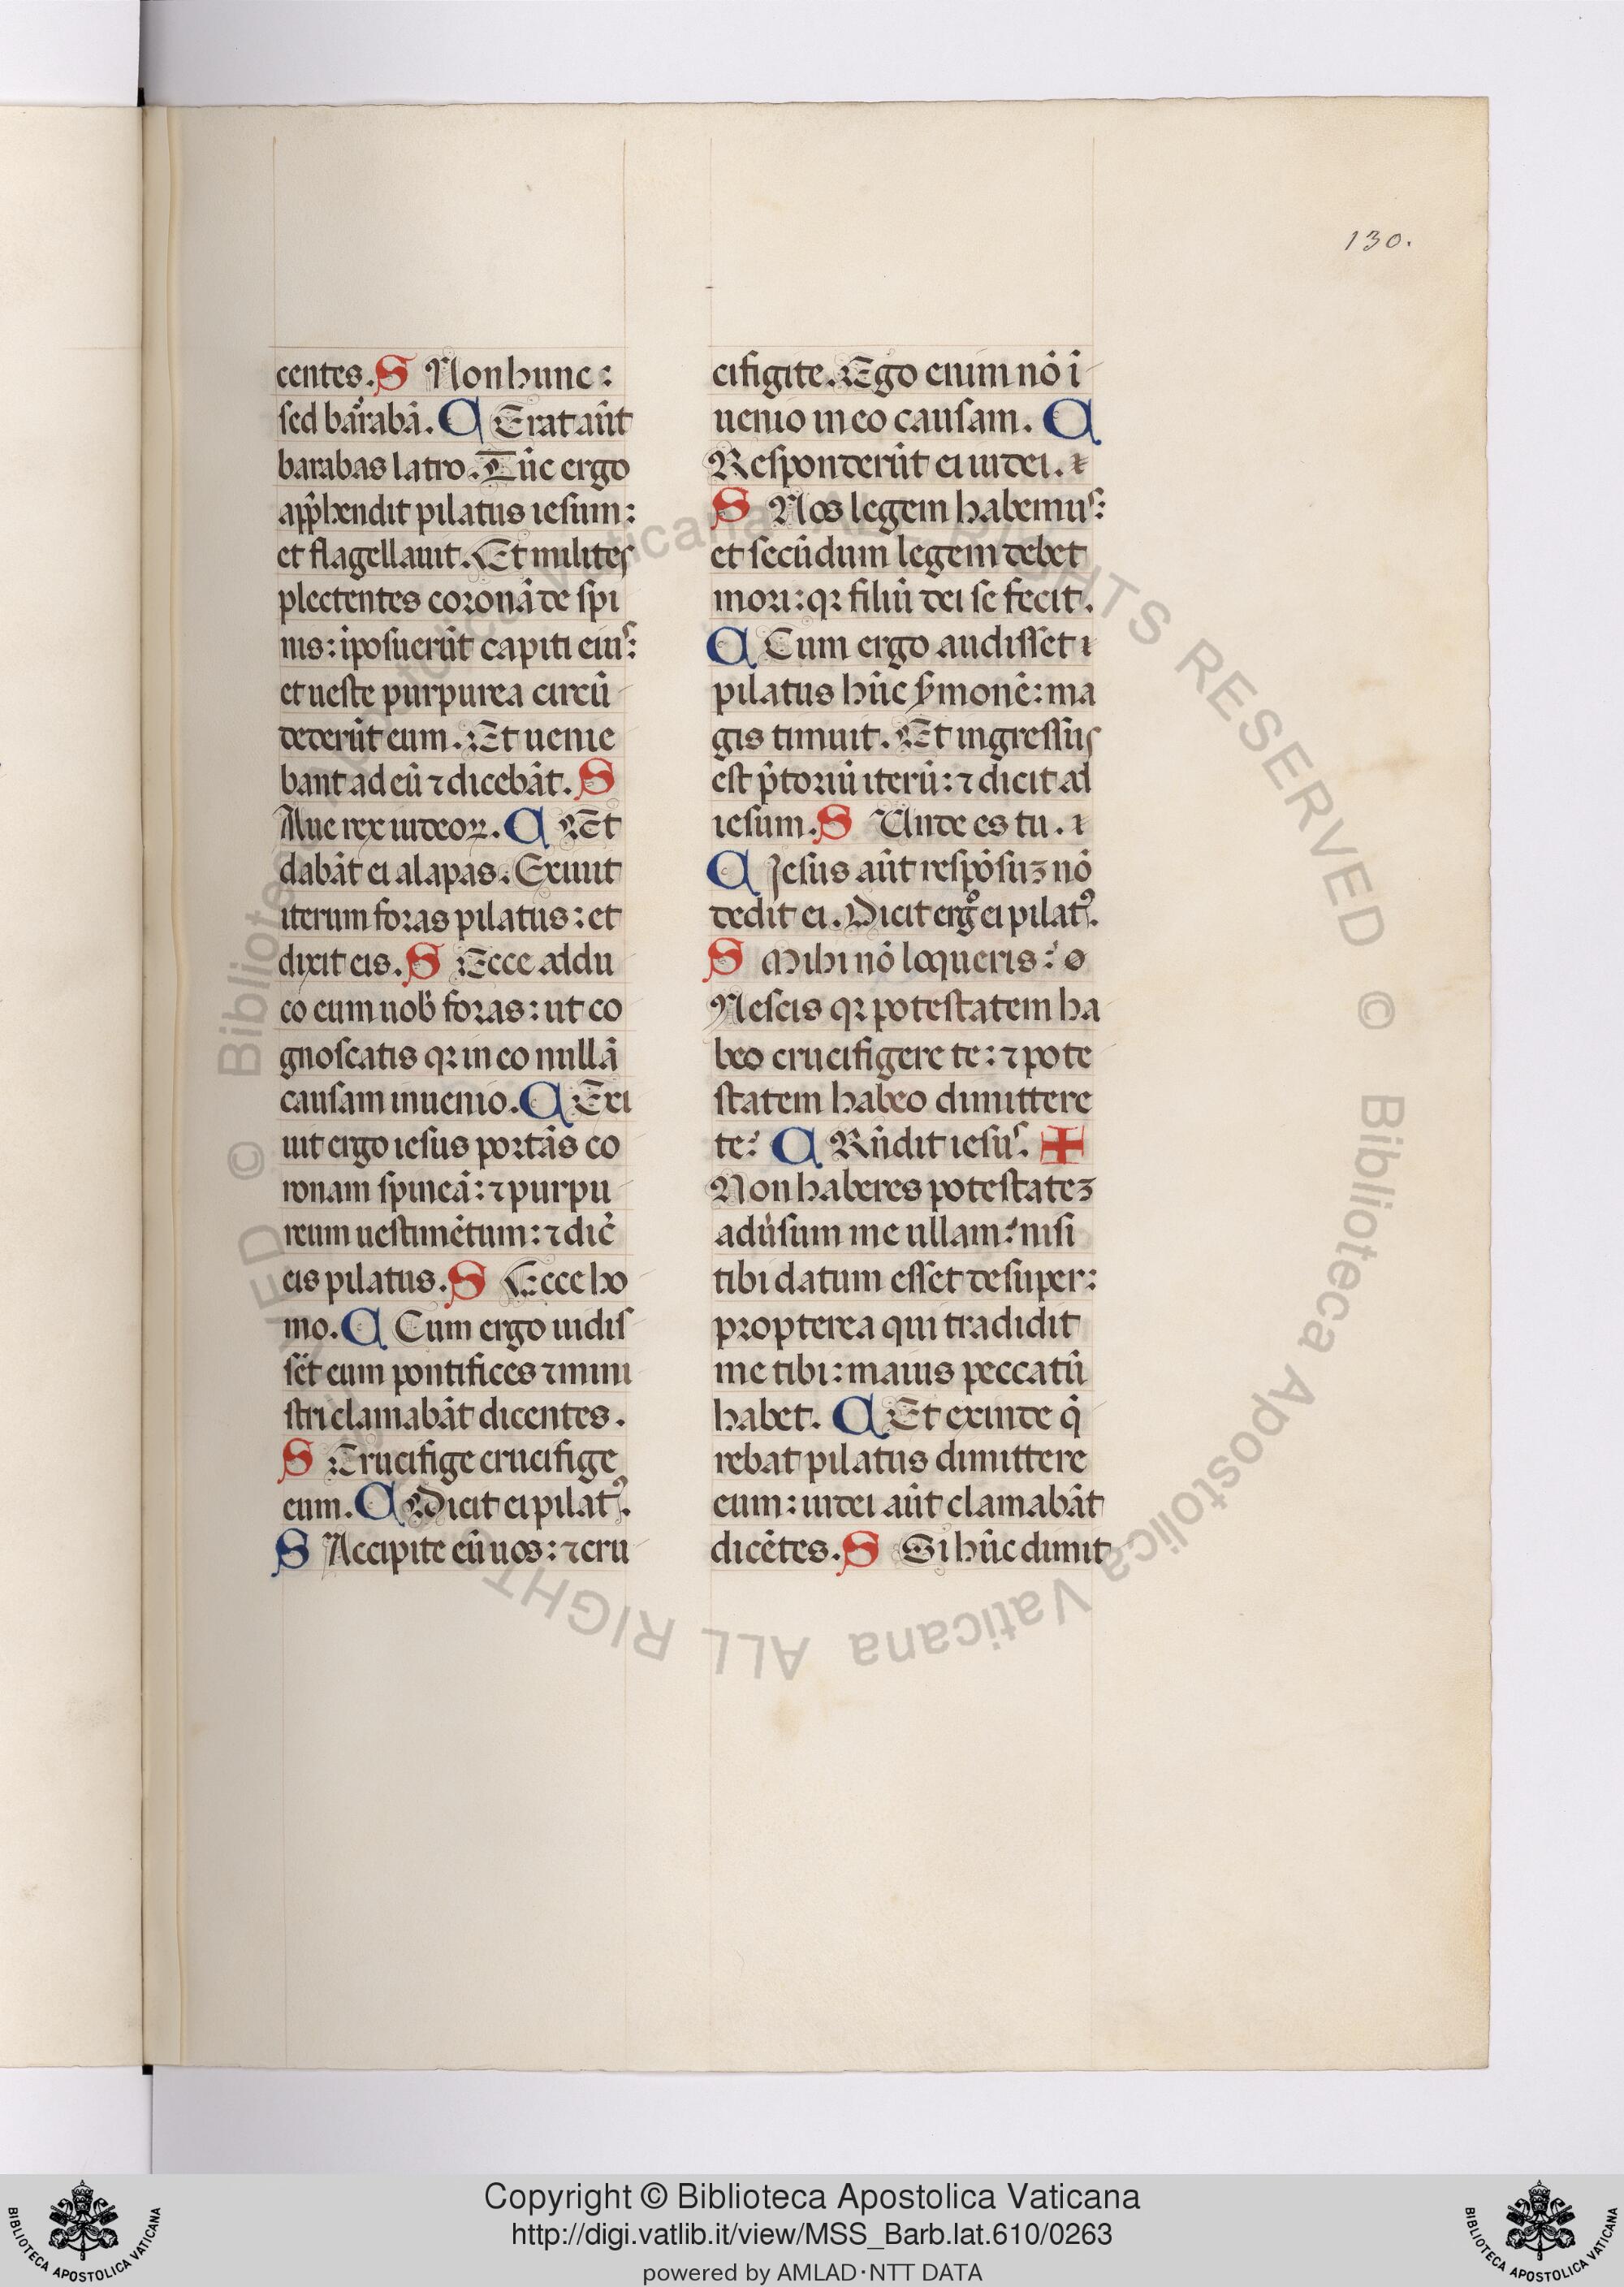 130.
centes. S Non hunc:
sed barrabā. C Erat aūt
barabas latro. Tūc ergo
app̄hendit pilatus iesum:
et flagellauit. Et milites
plectentes coronā de spi
nis: īposuerūt capiti eiuˢ:
et ueste purpurea circū
dederūt eum. Et uenie
bant ad eū ⁊ dicebāt. S
Aue rex iudeoꝝ. C Et
dabāt ei alapas. Exiuit
iterum foras pilatus: et
dixit eis. S Ecce addu
co eum uob̄ foras: ut co
gnoscatis qꝛ in eo nullā
causam inuenio. C Exi
uit ergo iesus portās co
ronam spineā: ⁊ purpu
reum uestimētum: ⁊ dic̄
eis pilatus. S Ecce ho
mo. C Cum ergo uidis
sēt eum pontifices ⁊ mini
stri clamabāt dicentes.
S Crucifige crucifige
eum. C Dicit ei pilatꝰ.
S Accipite eū uos: ⁊ cru
cifigite. Ego enim nō ī
uenio in eo causam. C
Responderūt ei iudei.
S Nos legem habemuˢ:
et secūdum legem debet
mori: qꝛ filiū dei se fecit.
C Cum ergo audisset
pilatus hūc s̄monē: ma
gis timuit. Et ingressus
est p̄toriū iterū: ⁊ dicit ad
iesum. S Unde es tu.
C Jesus aūt respōsuꝫ nō
dedit ei. Dicit ergo ei pilatꝰ.
S Mihi nō loqueris:
Nescis qꝛ potestatem ha
beo crucifigere te: ⁊ pote
statem habeo dimittere
te: C Rn̄dit iesuˢ. ✚
Non haberes potestateꝫ
adūsum me ullam: nisi
tibi datum esset desuper:
propterea qui tradidit
me tibi: maius peccatū
habet. C Et exinde q̄
rebat pilatus dimittere
eum: iudei aūt clamabāt
dicētes. S Si hūc dimit
© Biblioteca Apostolica Vaticana ALL RIGHTS RESERVED © Biblioteca Apostolica Vaticana ALL RIGHTS RESERVED
Copyright © Biblioteca Apostolica Vaticana
http://digi.vatlib.it/view/MSS_Barb.lat.610/0263
powered by AMLAD·NTT DATA
BIBLIOTECA APOSTOLICA VATICANA
BIBLIOTECA APOSTOLICA VATICANA